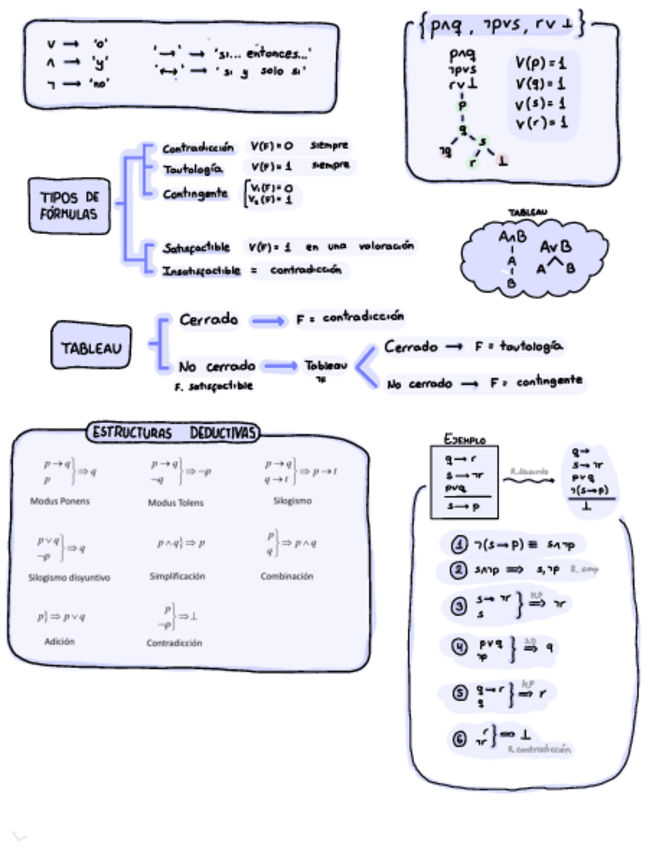 ∨ → 'o'
∧ → 'y'
¬ → 'no'
'→' → 'si... entonces...'
'↔' → 'si y solo si'
{ p∧q, ¬p∨s, r∨⊥ }
p∧q
¬p∨s
r∨⊥
p
q
¬q s
r ⊥
V(p) = 1
V(q) = 1
V(s) = 1
V(r) = 1
TIPOS DE
FÓRMULAS
Contradicción V(F) = 0 siempre
Tautología V(F) = 1 siempre
Contingente V₁(F) = 0
V₂(F) = 1
Satisfactible V(F) = 1 en una valoración
Insatisfactible = contradicción
TABLEAU
A∧B
A
B
A∨B
A B
TABLEAU
Cerrado → F = contradicción
No cerrado → Tableau
F. satisfactible
Cerrado → F = tautología
No cerrado → F = contingente
ESTRUCTURAS DEDUCTIVAS
p → q
p } ⇒ q
Modus Ponens
p → q
¬q } ⇒ ¬p
Modus Tolens
p → q
q → t } ⇒ p → t
Silogismo
p ∨ q
¬p } ⇒ q
Silogismo disyuntivo
p ∧ q} ⇒ p
Simplificación
p
q } ⇒ p ∧ q
Combinación
p} ⇒ p ∨ q
Adición
p
¬p } ⇒ ⊥
Contradicción
EJEMPLO
q → r
s → ¬r
p∨q
s → p
R. absurdo
q →
s → ¬r
p∨q
¬(s→p)
⊥
① ¬(s→p) ≡ s∧¬p
② s∧¬p ⇒ s,¬p R. simp
③ s → ¬r
s } ⇒ ¬r
④ p∨q
¬p } ⇒ q
⑤ q → r
q } ⇒ r
⑥ r
¬r } ⇒ ⊥
R. contradicción